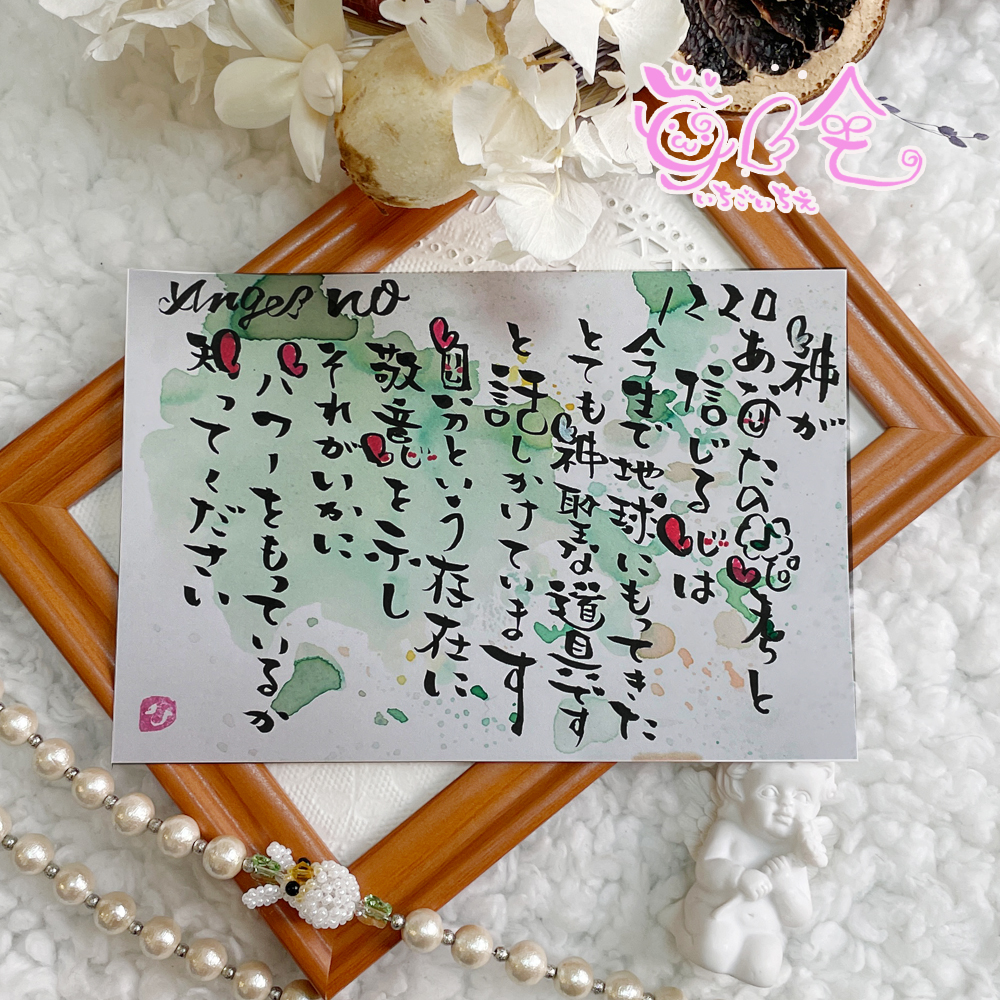 いちごいちえ
Angel no 1220
神が
あなたの と
信じる心は
今まで地球にもってきた
とても神聖な道具です
と話しかけています
自分という存在に
敬意を示し
それがいかに
パワーをもっているか
知ってください